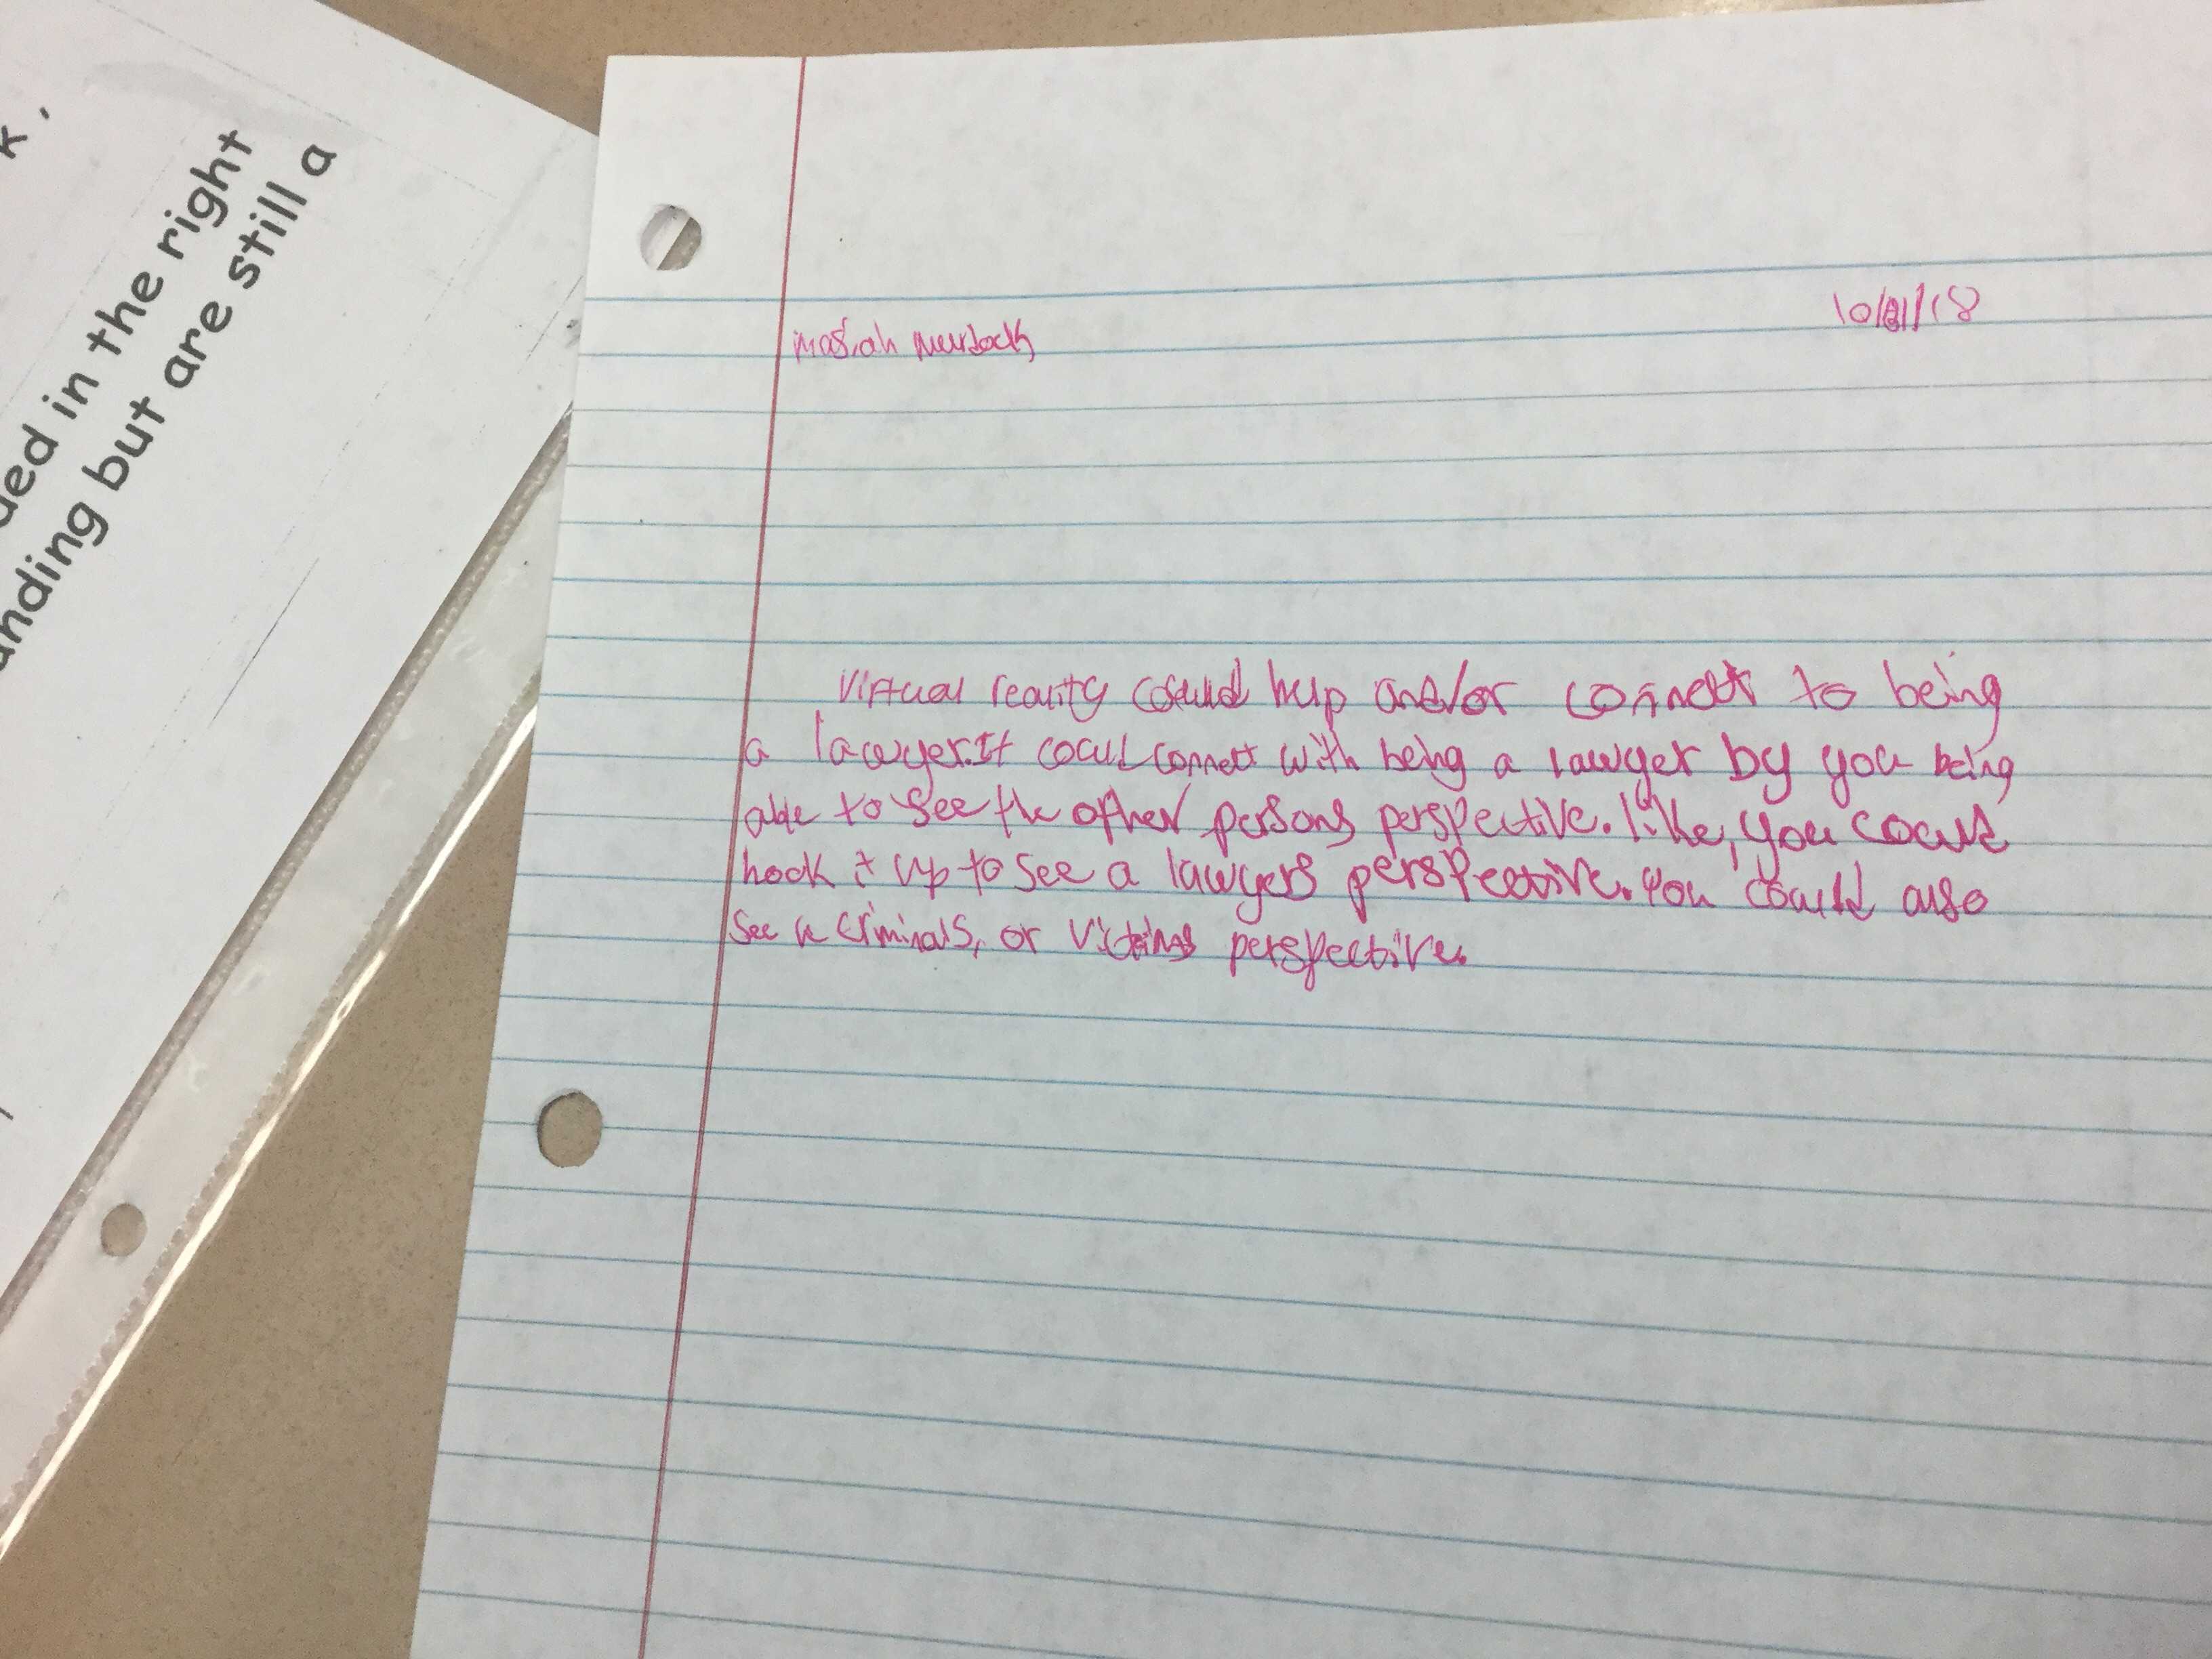 ded in the right
anding but are still a
Mariah Murdock
10/31/18
Virtual reality could help and/or connect to being
a lawyer. It could connect with being a lawyer by you being
able to see the other persons perspective. like, you could
hook it up to see a lawyers perspective. You could also
see a criminals, or victims perspective.